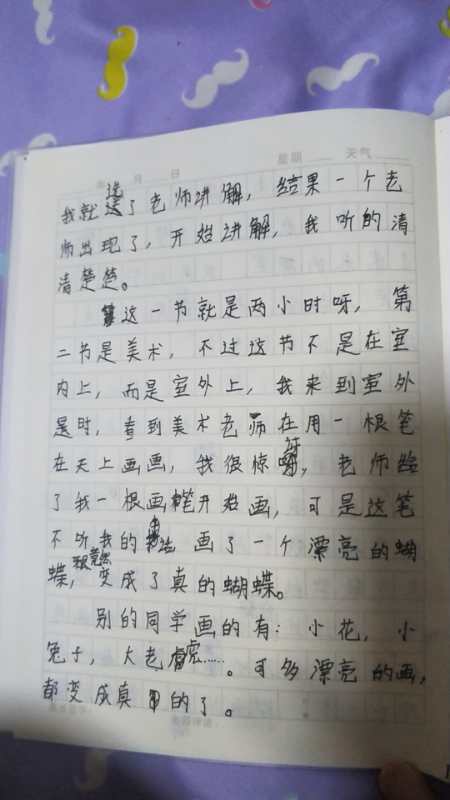 月 日 星期 天气
我就选了老师讲解，结果一个老
师出现了，开始讲解，我听的清
清楚楚。
这一节就是两小时呀，第
二节是美术，不过这节不是在室
内上，而是室外上，我来到室外
是时，看到美术老师在用一根笔
在天上画画，我很惊讶，老师给
了我一根画笔开始画，可是这笔
不听我的 画了一个漂亮的蝴
蝶，竟然变成了真的蝴蝶。
别的同学画的有：小花，小
兔子，大老虎……。可多漂亮的画，
都变成真的了。